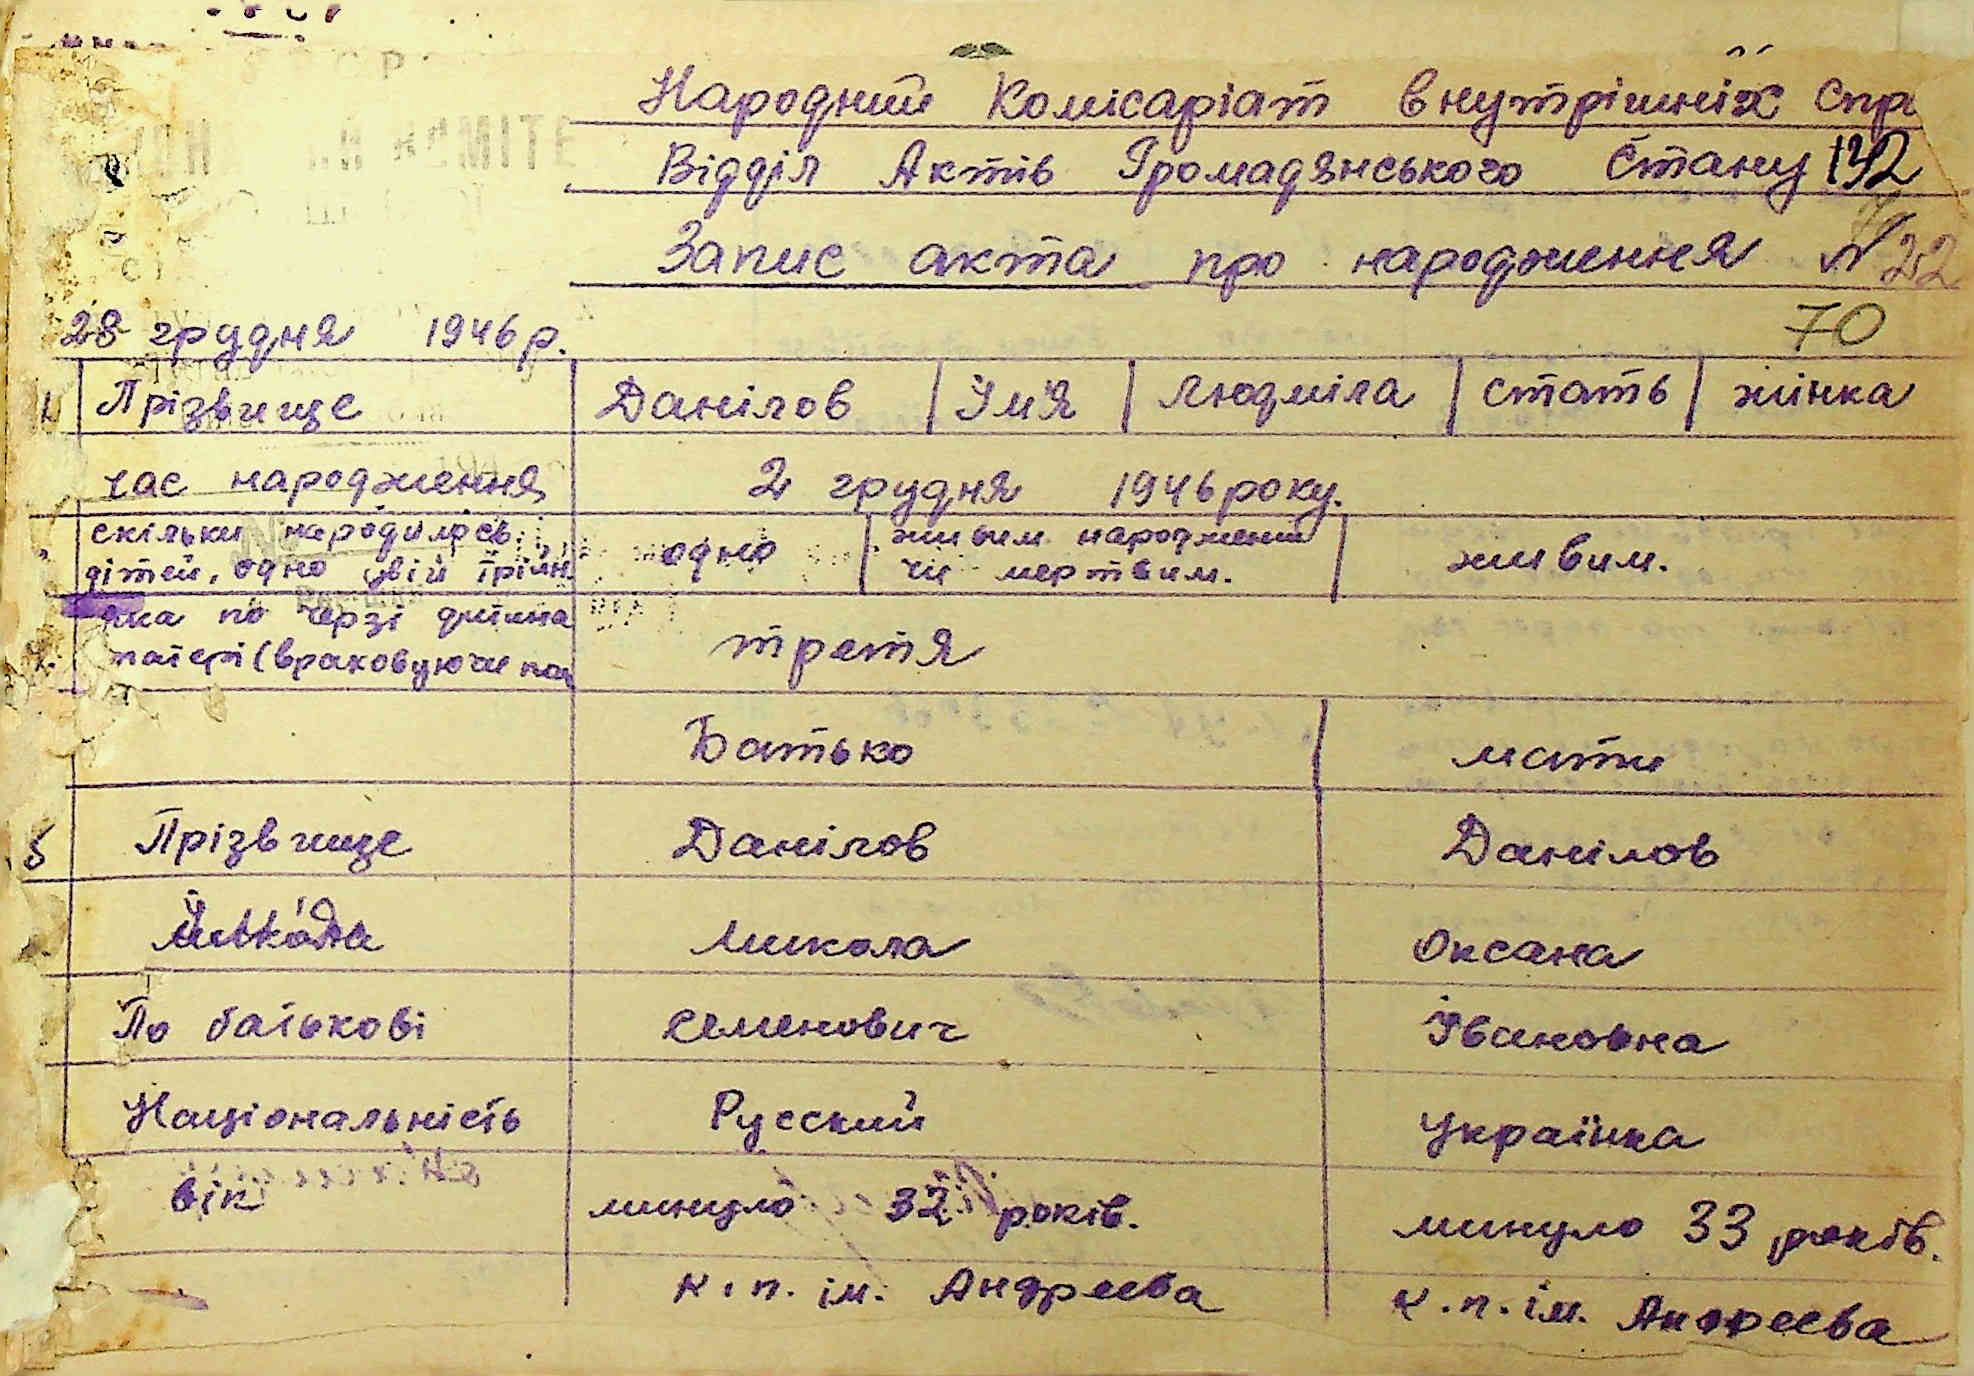 Народний Комісаріат внутрішніх Спр
Відділ Актів Громадянського Стану 192
Запис акта про народження № 22
70
28 грудня 1946 р.
Прізвище Данілов Ім'я Людміла стать жінка
час народження 2 грудня 1946 року.
скільки народилось одно живим народжений живим.
дітей, одно двій трійн. чи мертвим.
яка по черзі дитина третя
матері (враховуючи по
Батько мати
5 Прізвище Данілов Данілов
Микола Оксана
По батькові Семенович Івановна
Національність Русский Українка
вік минуло 32 років. минуло 33 років.
к.п. ім. Андреева к.п. ім. Андреева